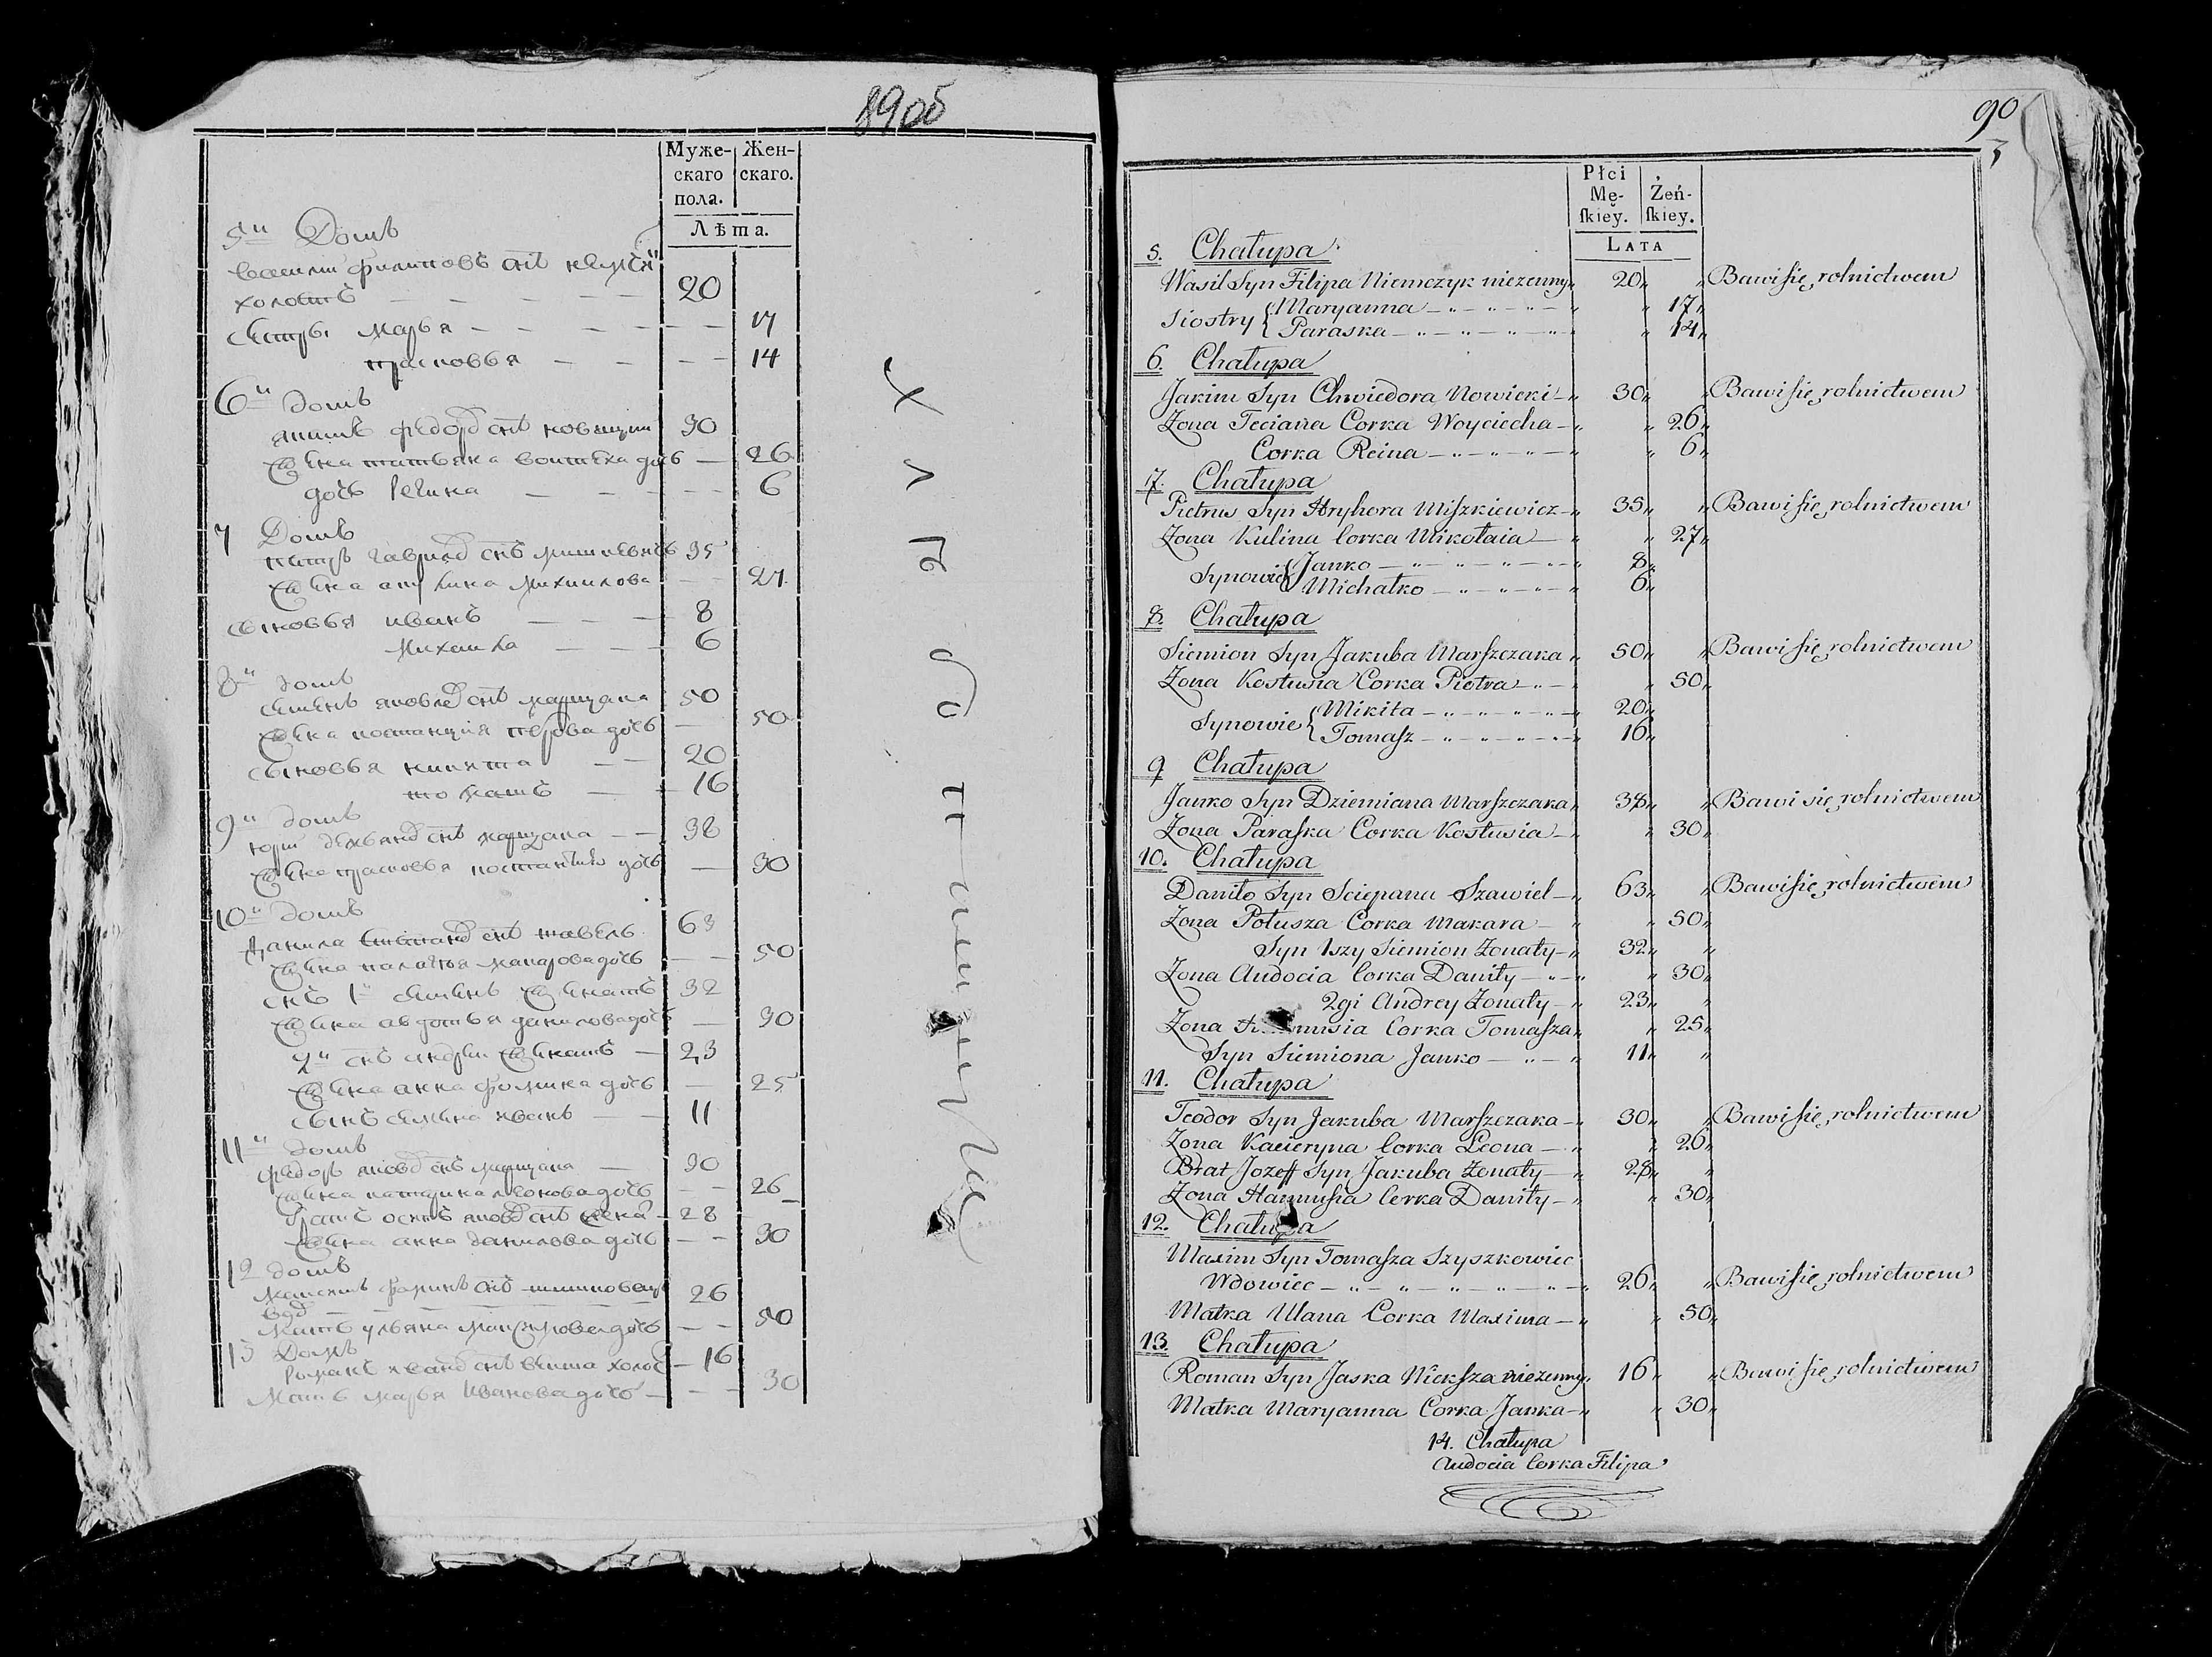 89об
Муже-
скаго
пола.
Жен-
скаго.
Лѣта.
5й Домъ
василий филиповъ снъ
холостъ — — — — — 20
сестры марья — — — — — 17
прасковья — — — — 14
6й домъ
якимъ федоръ снъ новицкий 30
жена татьяна войтеха дочь — 26
дочь регина — — — — 6
7 Домъ
петръ гаврилъ снъ мишкевичь 35
жена акулина михайлова — — 27
сыновья иванъ — — — 8
михайла — — — 6
8й домъ
семенъ яковлевъ снъ марщака 50
жена костанция петрова дочь — 50
сыновья никита — — 20
томашъ — — 16
9й домъ
юрий демьянъ снъ марщака — — 38
жена прасковья дочь — 30
10й домъ
данила степанъ снъ шавель 63
жена палагея макарова дочь — — 50
снъ 1й семенъ женатъ 32
жена авдотья данилова дочь — 30
2й снъ андрей женатъ — 23
жена анна фомина дочь — 25
сынъ семена иванъ — — 11
11й домъ
федоръ яковъ снъ марщака — 30
жена катерина леонова дочь — — 26
братъ осипъ яковъ снъ женат — 28
жена анна данилова дочь — — 30
12 домъ
максимъ фоминъ снъ 26
вдо — — — — — —
мать ульяна максимова дочь — — 50
13 Домъ
романъ иванъ снъ холос — 16
мать марья иванова дочь — — — 30
Хлѣбопашцы
90
Płci
Mę-
skiey.
Żeń-
skiey.
LATA
5. Chałupa
Wasil Syn Filipa Niemczyk niezenny 20 Bawi się rolnictwem
Siostry { Maryanna — 17
Paraska — 14
6. Chałupa
Jakim Syn Chwiedora Nowicki — 30 Bawi się rolnictwem
Zona Teciana Corka Woyciecha — 26
Corka Reina — 6
7. Chałupa
Pietrus Syn Hryhora Miszkiewicz — 35 Bawi się rolnictwem
Zona Kulina Corka Mikołaia — 27
Synowie { Janko — 8
Michałko — 6
8. Chałupa
Siemion Syn Jakuba Marszczaka 50 Bawi się rolnictwem
Zona Kostusia Corka Piotra — 50
Synowie { Mikita — 20
Tomasz — 16
9 Chałupa
Janko Syn Dziemiana Marszczaka 38 Bawi się rolnictwem
Zona Paraska Corka Kostusia — 30
10. Chałupa
Daniło Syn Sciepana Szawiel — 63 Bawi się rolnictwem
Zona Połusza Corka Makara — 50
Syn 1szy Siemion Zonaty — 32
Zona Audocia Corka Daniły — 30
2gi Andrey Zonaty — 23
Zona Corka Tomasza 25
Syn Siemiona Janko — 11
11. Chałupa
Teodor Syn Jakuba Marszczaka — 30 Bawi się rolnictwem
Zona Kacieryna Corka Leona — 26
Brat Jozeff Syn Jakuba Zonaty — 28
Zona Hannusia Corka Daniły — 30
12. Chałupa
Maxim Syn Tomasza Szyszkowiec
Wdowiec — 26 Bawi się rolnictwem
Matka Ulana Corka Maxima — 50
13. Chałupa
Roman Syn Jaska Wieksza niezenny 16 Bawi się rolnictwem
Matka Maryanna Corka Janka — 30
14. Chałupa
Audocia Corka Filipa